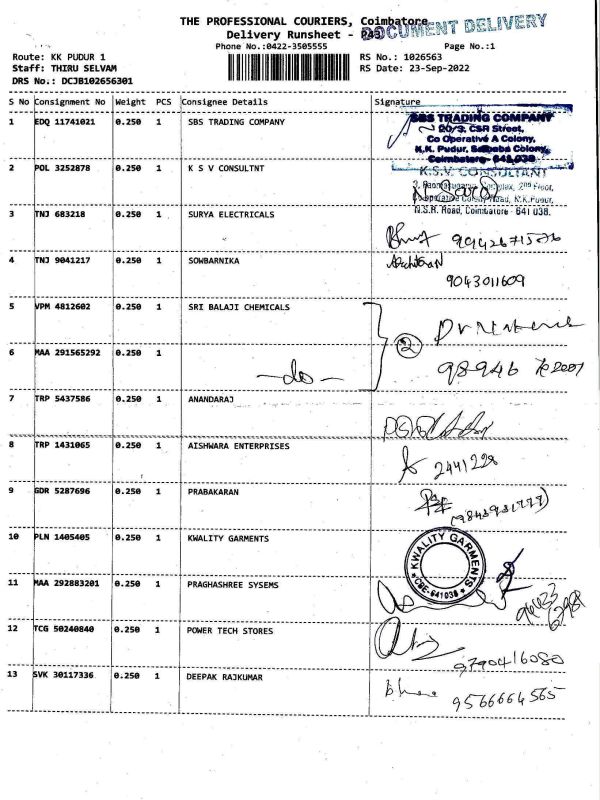 THE PROFESSIONAL COURIERS, Coimbatore
DOCUMENT DELIVERY
Delivery Runsheet -
Phone No.:0422-3505555
Page No.:1
Route: KK PUDUR 1
RS No.: 1026563
Staff: THIRU SELVAM
RS Date: 23-Sep-2022
DRS No.: DCJB102656301
S No Consignment No Weight PCS Consignee Details Signature
1 EDQ 11741021 0.250 1 SBS TRADING COMPANY
SBS TRADING COMPANY
20/3, CSR Street,
Co Operative A Colony,
K.K. Pudur, Saibaba Colony,
Coimbatore- 641 038.
2 POL 3252878 0.250 1 K S V CONSULTNT
K.S.V. CONSULTANT
Complex, 2nd Floor,
Co-operative Colony Road, K.K.Pudur,
N.S.R. Road, Coimbatore - 641 038.
3 TNJ 683218 0.250 1 SURYA ELECTRICALS
4 TNJ 9041217 0.250 1 SOWBARNIKA
9043011609
5 VPM 4812602 0.250 1 SRI BALAJI CHEMICALS
2
6 MAA 291565292 0.250 1
-do-
98946
7 TRP 5437586 0.250 1 ANANDARAJ
8 TRP 1431065 0.250 1 AISHWARA ENTERPRISES
2441228
9 GDR 5287696 0.250 1 PRABAKARAN
10 PLN 1405405 0.250 1 KWALITY GARMENTS
KWALITY GARMENTS
CBE-641038
11 MAA 292883201 0.250 1 PRAGHASHREE SYSEMS
12 TCG 50240840 0.250 1 POWER TECH STORES
9790416080
13 SVK 30117336 0.250 1 DEEPAK RAJKUMAR
9566664565